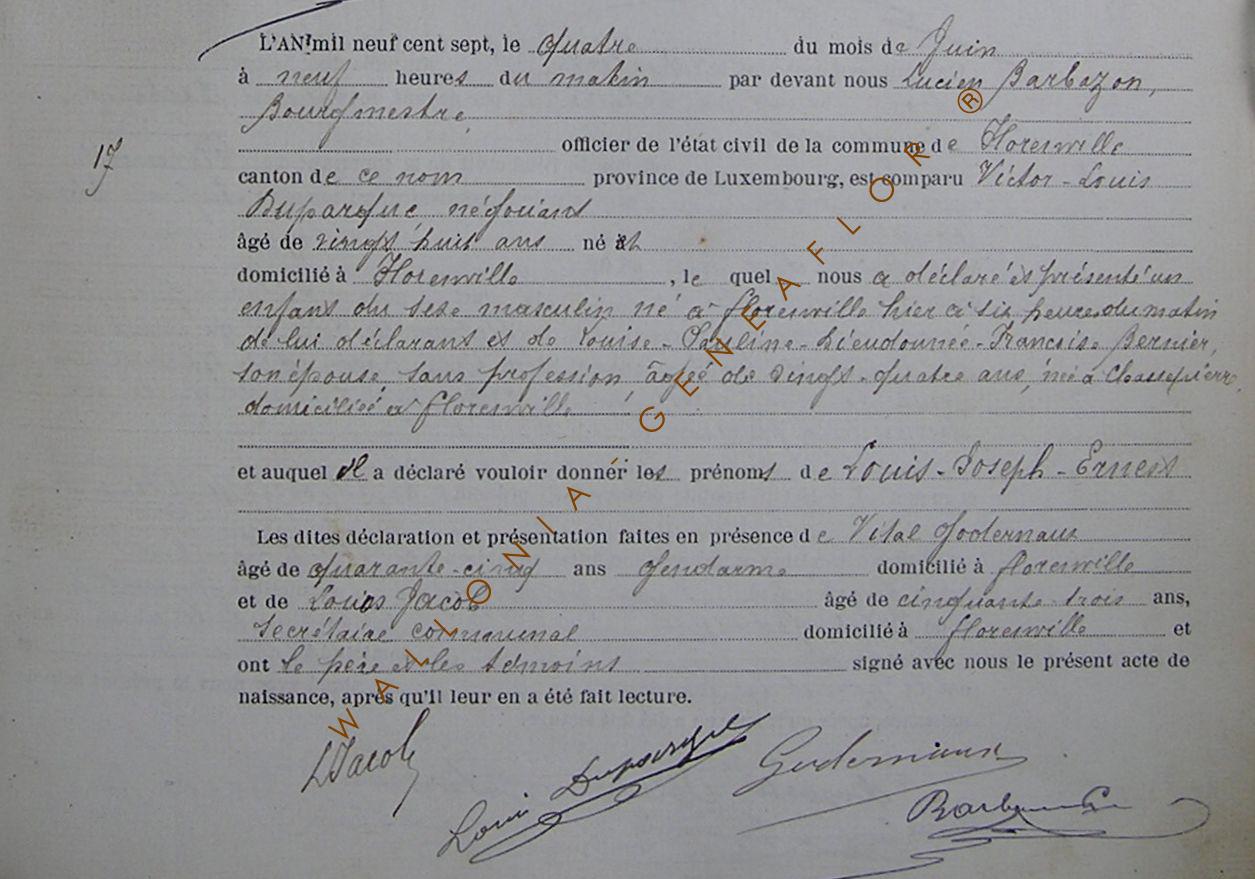 L'AN mil neuf cent sept, le quatre du mois de Juin
à neuf heures du matin par devant nous Lucien Barbazon,
Bourgmestre,
officier de l'état civil de la commune de Florenville
17
canton de ce nom province de Luxembourg, est comparu Victor-Louis
Duparque négociant
âgé de vingt huit ans né à
domicilié à Florenville, lequel nous a déclaré et présenté un
enfant du sexe masculin né à florenville hier à six heures du matin
de lui déclarant et de Louise-Pauline-Dieudonnée-Françoise Bernier,
son épouse, sans profession, âgée de vingt-quatre ans, née à Chassepierre,
domiciliée à florenville
et auquel il a déclaré vouloir donner les prénoms de Louis-Joseph-Ernest
Les dites déclaration et présentation faites en présence de Vital Godernaux
âgé de quarante-cinq ans Gendarme domicilié à florenville
et de Louis Jacob âgé de cinquante trois ans,
Secrétaire communal domicilié à florenville et
ont le père et les témoins signé avec nous le présent acte de
naissance, après qu'il leur en a été fait lecture.
LJacob
Louis Duparque
Godernaux
WALLONIA GENEAFLOR ®